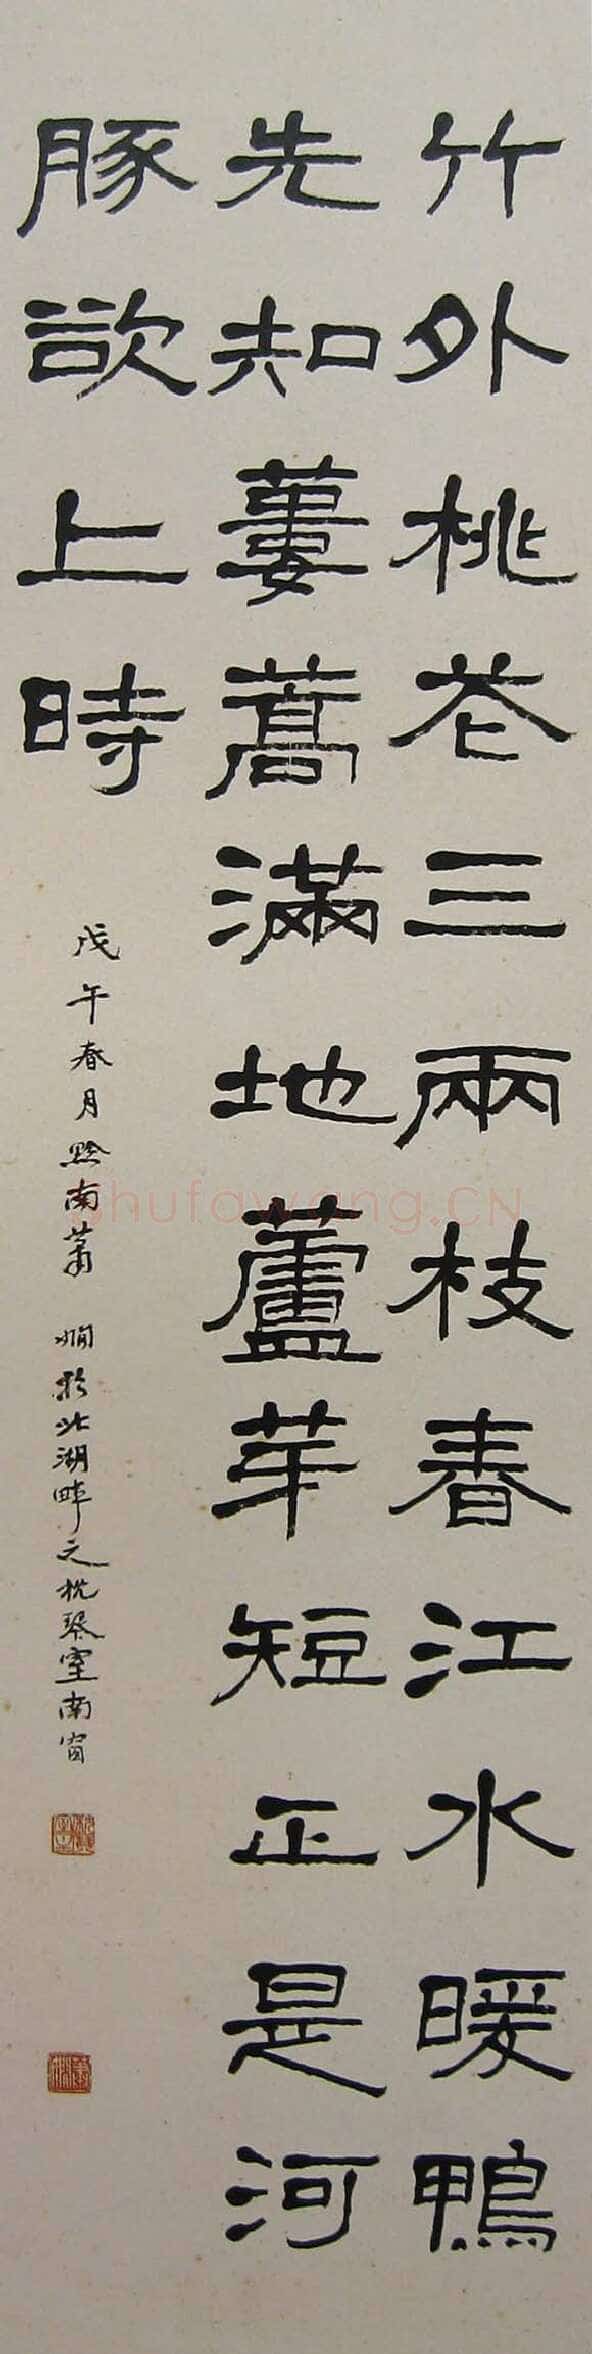 竹外桃花三兩枝春江水暖鴨
先知蔞蒿滿地蘆芽短正是河
豚欲上時
戊午春月黔南蕭嫺於北湖畔之枕琴室南窗
shufawang.CN